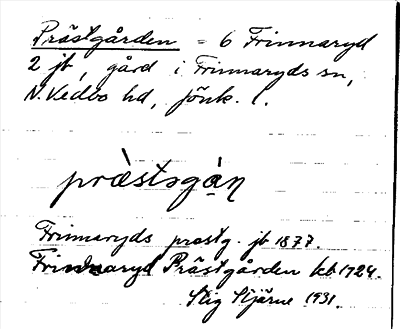 Prästgården = 6 Frinnaryd
2 jb, gård i Frinnaryds sn,
N. Vedbo hd, Jönk. l.
prästsgån
Frinnaryds prostg. jb 1877.
Frinnaryd Prästgården kb 1724.
Stig Stjärne 1931.